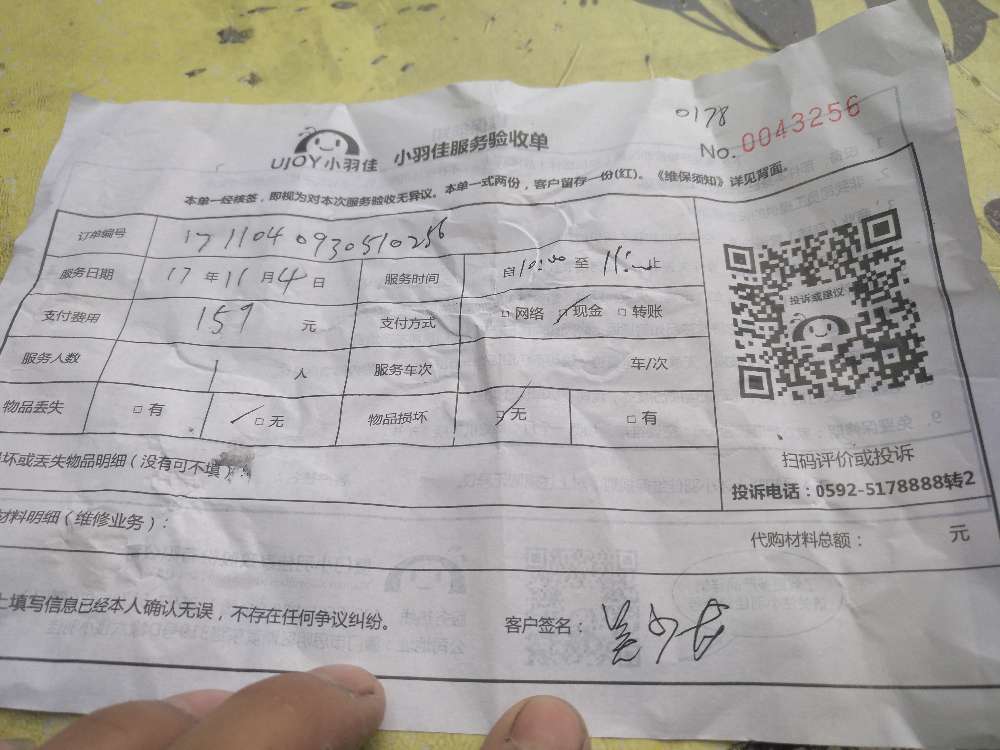 0178
No. 0043256
UJOY小羽佳 小羽佳服务验收单
本单一经核签，即视为对本次服务验收无异议。本单一式两份，客户留存一份(红)。《维保须知》详见背面。
订单编号 1711040930510256
服务日期 17年11月4日 服务时间 自10:00至11:00止
支付费用 159元 支付方式 □网络 □现金 □转账
服务人数 1人 服务车次 车/次
物品丢失 □有 □无 物品损坏 □无 □有
坏或丢失物品明细（没有可不填）：
材料明细（维修业务）：
代购材料总额： 元
上填写信息已经本人确认无误，不存在任何争议纠纷。
客户签名：
投诉或建议
扫码评价或投诉
投诉电话：0592-5178888转2